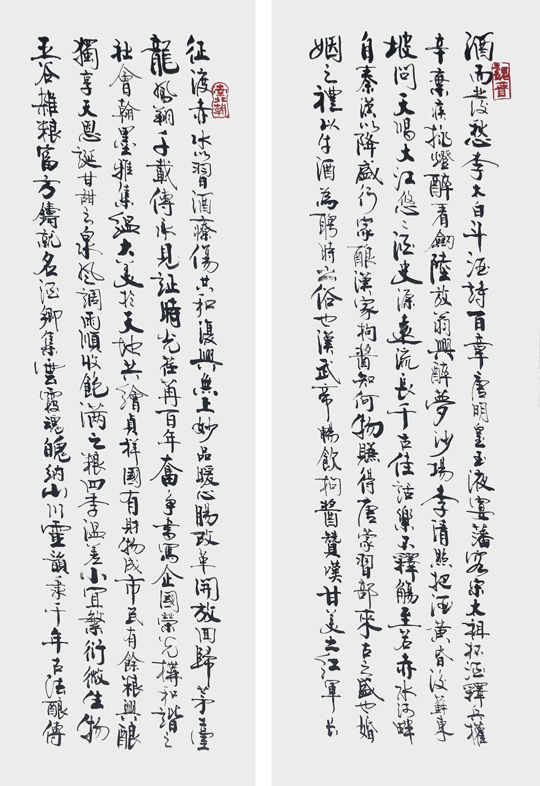 酒愁李太白斗酒詩百章唐明皇玉液宴藩客宗太祖杯酒釋兵權
辛棄疾挑燈醉看劍陸放翁興醉夢沙場李清照把酒黃昏後蘇東
坡問天賜大江悠悠酒史源遠流長千古佳話樂不釋觴至若赤水河畔
自秦漢以降盛行家釀漢家枸醬知何物賺得唐蒙習部來古之盛也婚
姻之禮以牛酒為聘時尚俗也漢武帝暢飲枸醬贊嘆甘美之紅軍長
征渡赤水以習酒療傷共和復興無上妙品暖心腸改革開放回歸茅臺
龍鳳翔千載傳承見証時光荏苒百年奮爭書寫企國榮光構和諧之
社會翰墨雅集蘊大美於天地共繪貞祥國有財物成市民有餘糧興釀
獨享天恩誕甘甜之泉風調雨順收飽滿之糧四季溫差小宜繁衍微生物
五谷雜糧富方鑄就名酒鄉集雲霞魂魄納山川靈韻秉千年古法釀傳